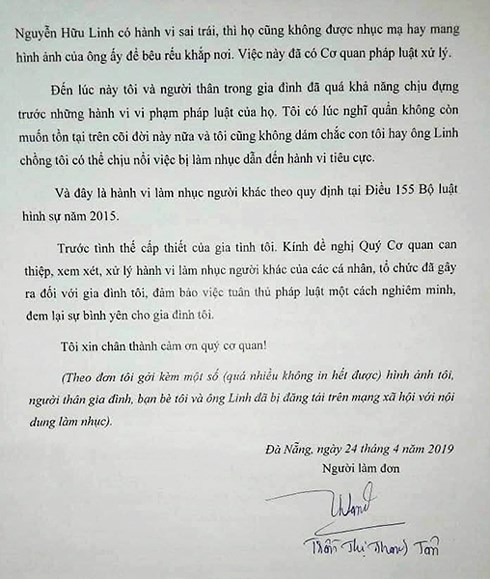 Nguyễn Hữu Linh có hành vi sai trái, thì họ cũng không được nhục mạ hay mang
hình ảnh của ông ấy để bêu rếu khắp nơi. Việc này đã có Cơ quan pháp luật xử lý.
Đến lúc này tôi và người thân trong gia đình đã quá khả năng chịu đựng
trước những hành vi vi phạm pháp luật của họ. Tôi có lúc nghĩ quẩn không còn
muốn tồn tại trên cõi đời này nữa và tôi cũng không dám chắc con tôi hay ông Linh
chồng tôi có thể chịu nổi việc bị làm nhục dẫn đến hành vi tiêu cực.
Và đây là hành vi làm nhục người khác theo quy định tại Điều 155 Bộ luật
hình sự năm 2015.
Trước tình thế cấp thiết của gia tình tôi. Kính đề nghị Quý Cơ quan can
thiệp, xem xét, xử lý hành vi làm nhục người khác của các cá nhân, tổ chức đã gây
ra đối với gia đình tôi, đảm bảo việc tuân thủ pháp luật một cách nghiêm minh,
đem lại sự bình yên cho gia đình tôi.
Tôi xin chân thành cảm ơn quý cơ quan!
(Theo đơn tôi gởi kèm một số (quá nhiều không in hết được) hình ảnh tôi,
người thân gia đình, bạn bè tôi và ông Linh đã bị đăng tải trên mạng xã hội với nội
dung làm nhục).
Đà Nẵng, ngày 24 tháng 4 năm 2019
Người làm đơn
Trần Thị Thanh